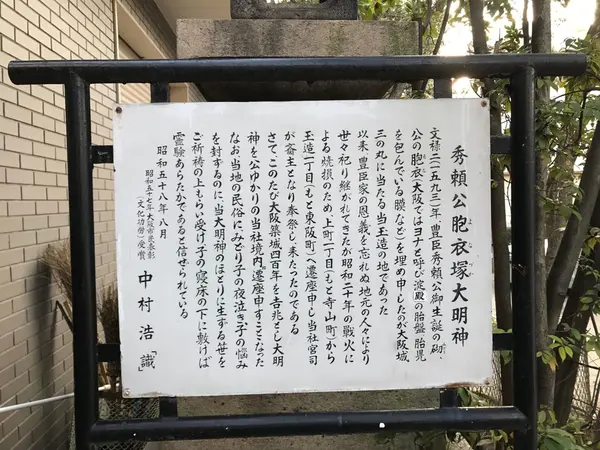 秀頼公胞衣塚大明神
文禄二(一五九三)年、豊臣秀頼公御生誕の砌、
公の胞衣(大阪ではヨナと呼び淀殿の胎盤、胎児
を包んでいる膜など)を埋め申したのが大阪城
三の丸に当たる当玉造の地であった
以来、豊臣家の恩義を忘れぬ地元の人々により
世々祀り継がれてきたが昭和二十年の戦火に
よる焼損のため、上町一丁目(もと寺山町)から
玉造一丁目(もと東阪町)へ遷座申し当社宮司
が斎主となり奉祭し来たったのである
さて、このたび大阪築城四百年を吉兆とし大明
神を公ゆかりの当社境内遷座申すことになった
なお当地の民俗にみどり子の夜泣き、子の悩み
を封ずるのに、当大明神のほとりに生ずる笹を
ご祈祷の上もらい受け子の寝床の下に敷けば
霊験あらたかであると信ぜられている
昭和五十八年八月
昭和五十七年大阪市民表彰
(文化功労)受賞
中村浩「識」